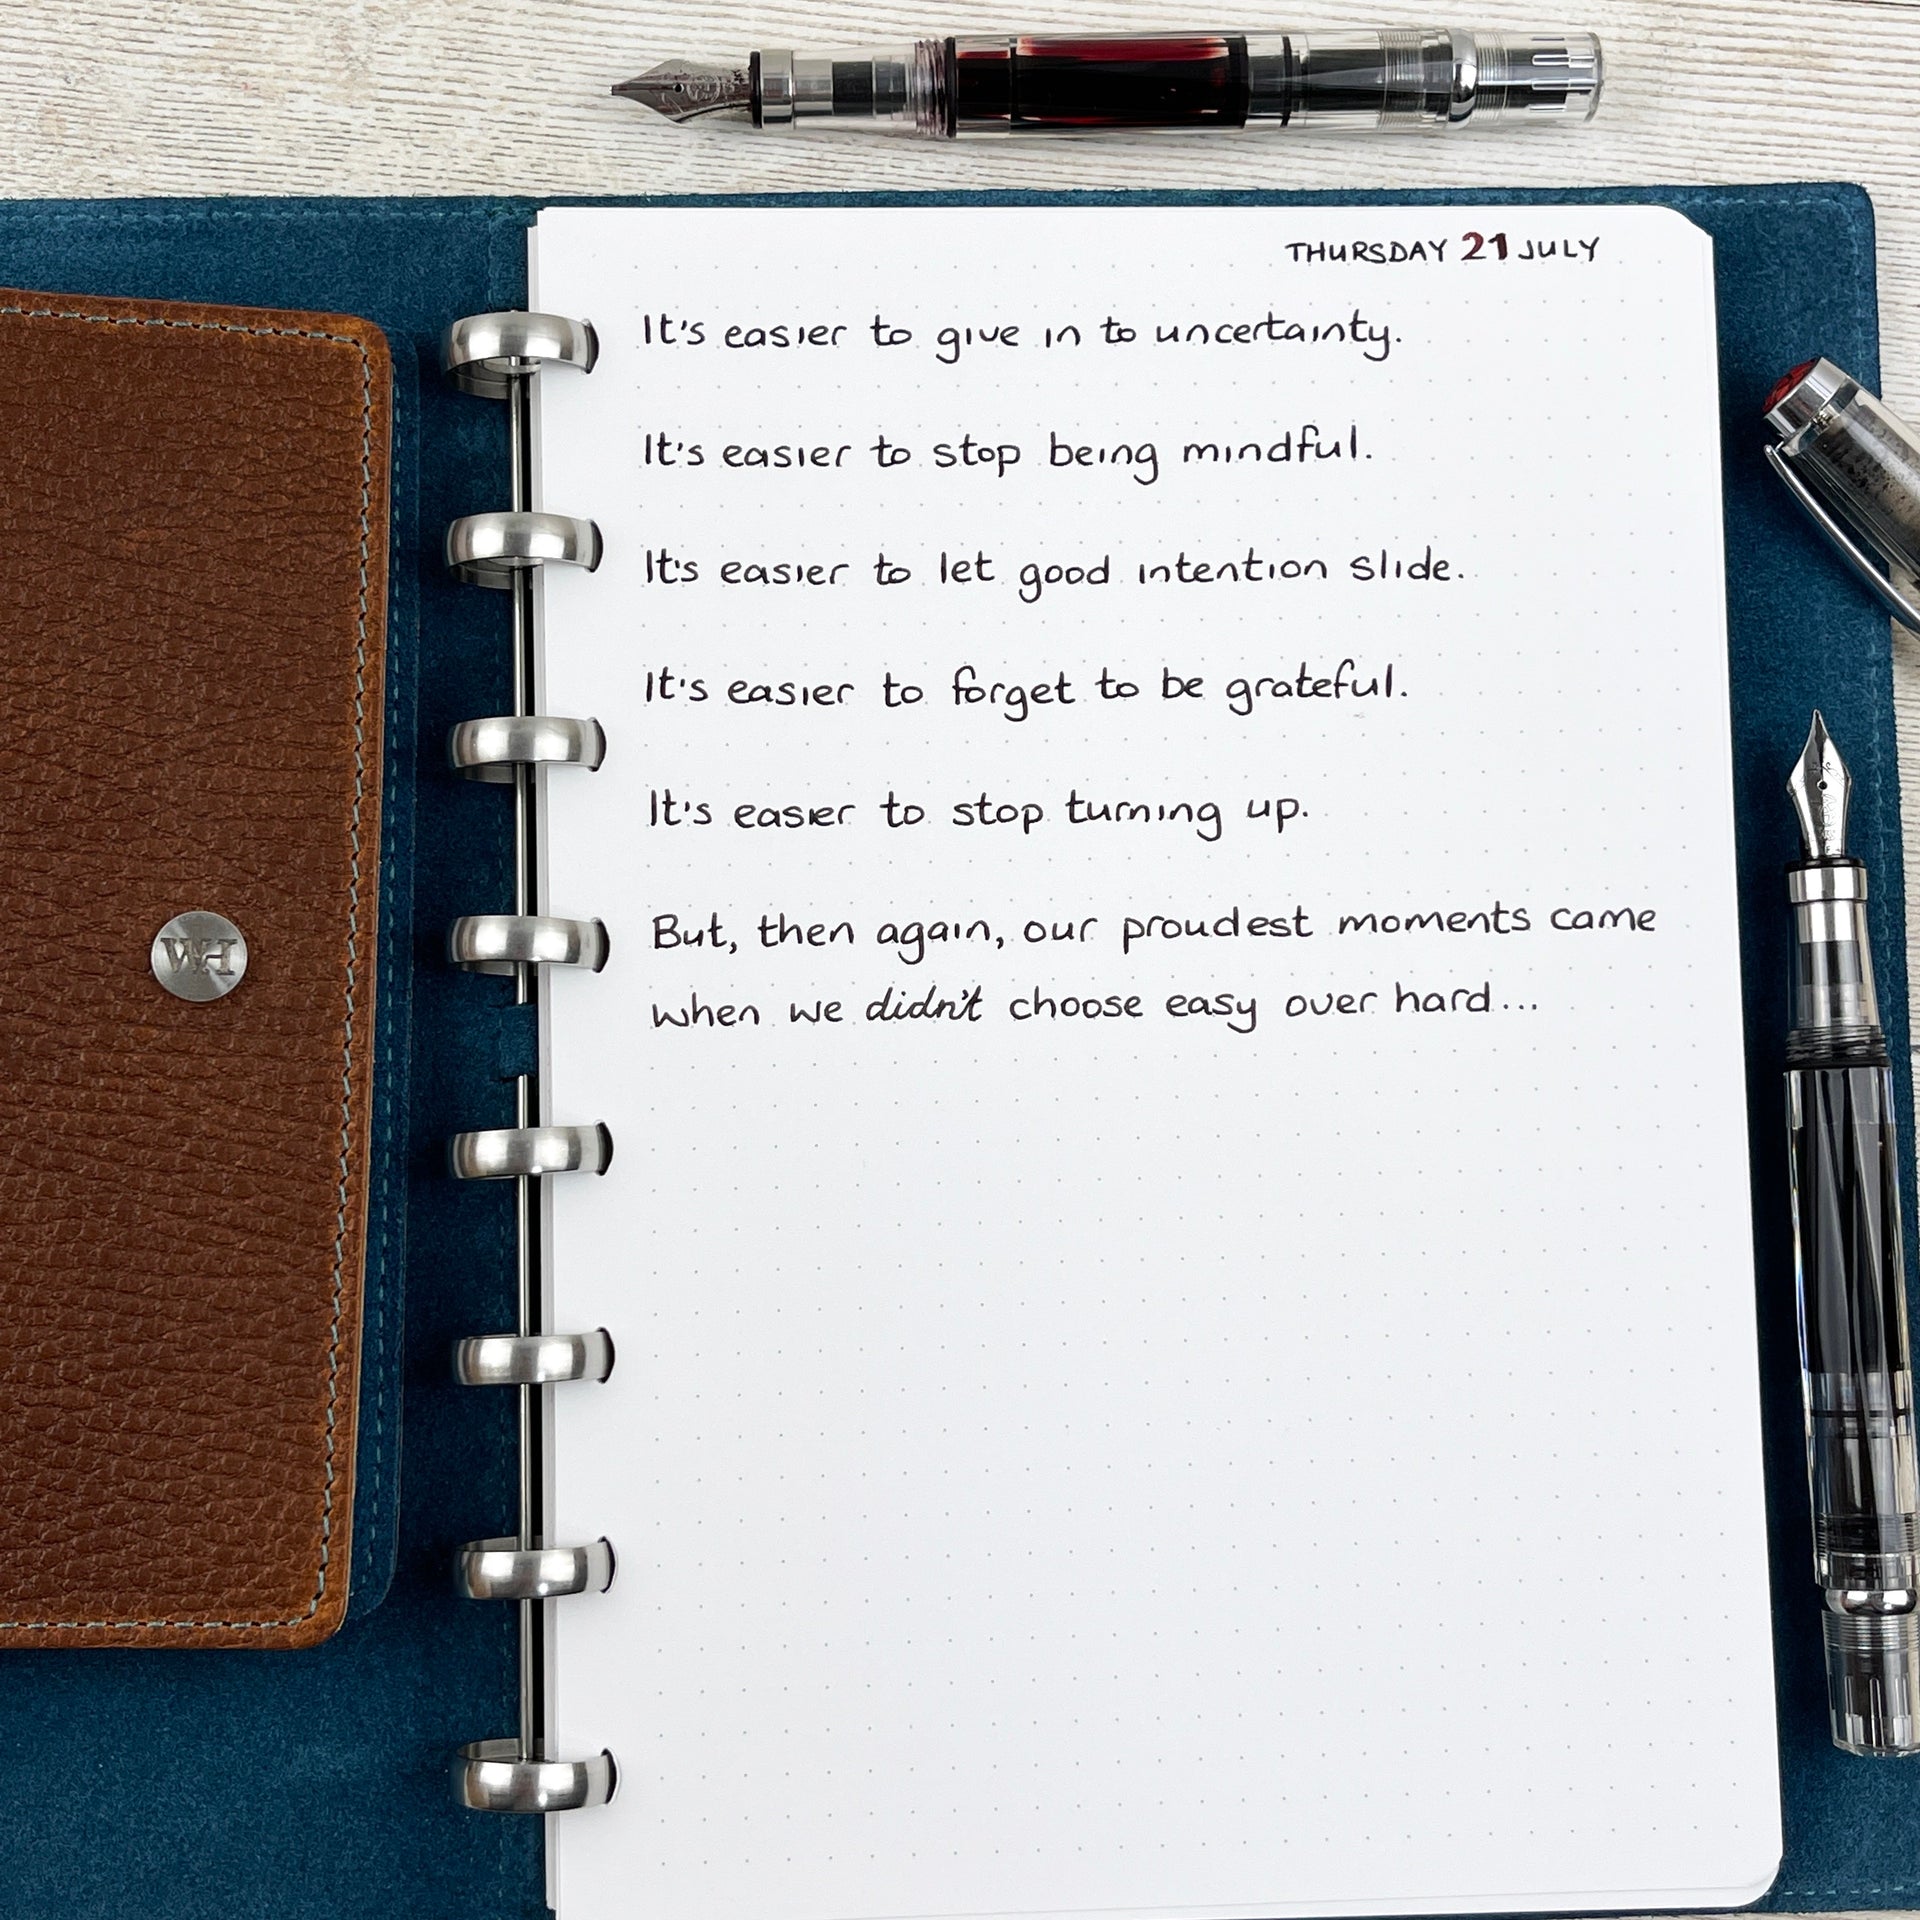 THURSDAY 21 JULY
It's easier to give in to uncertainty.
It's easier to stop being mindful.
It's easier to let good intention slide.
It's easier to forget to be grateful.
It's easier to stop turning up.
But, then again, our proudest moments came
when we didn't choose easy over hard...
WH